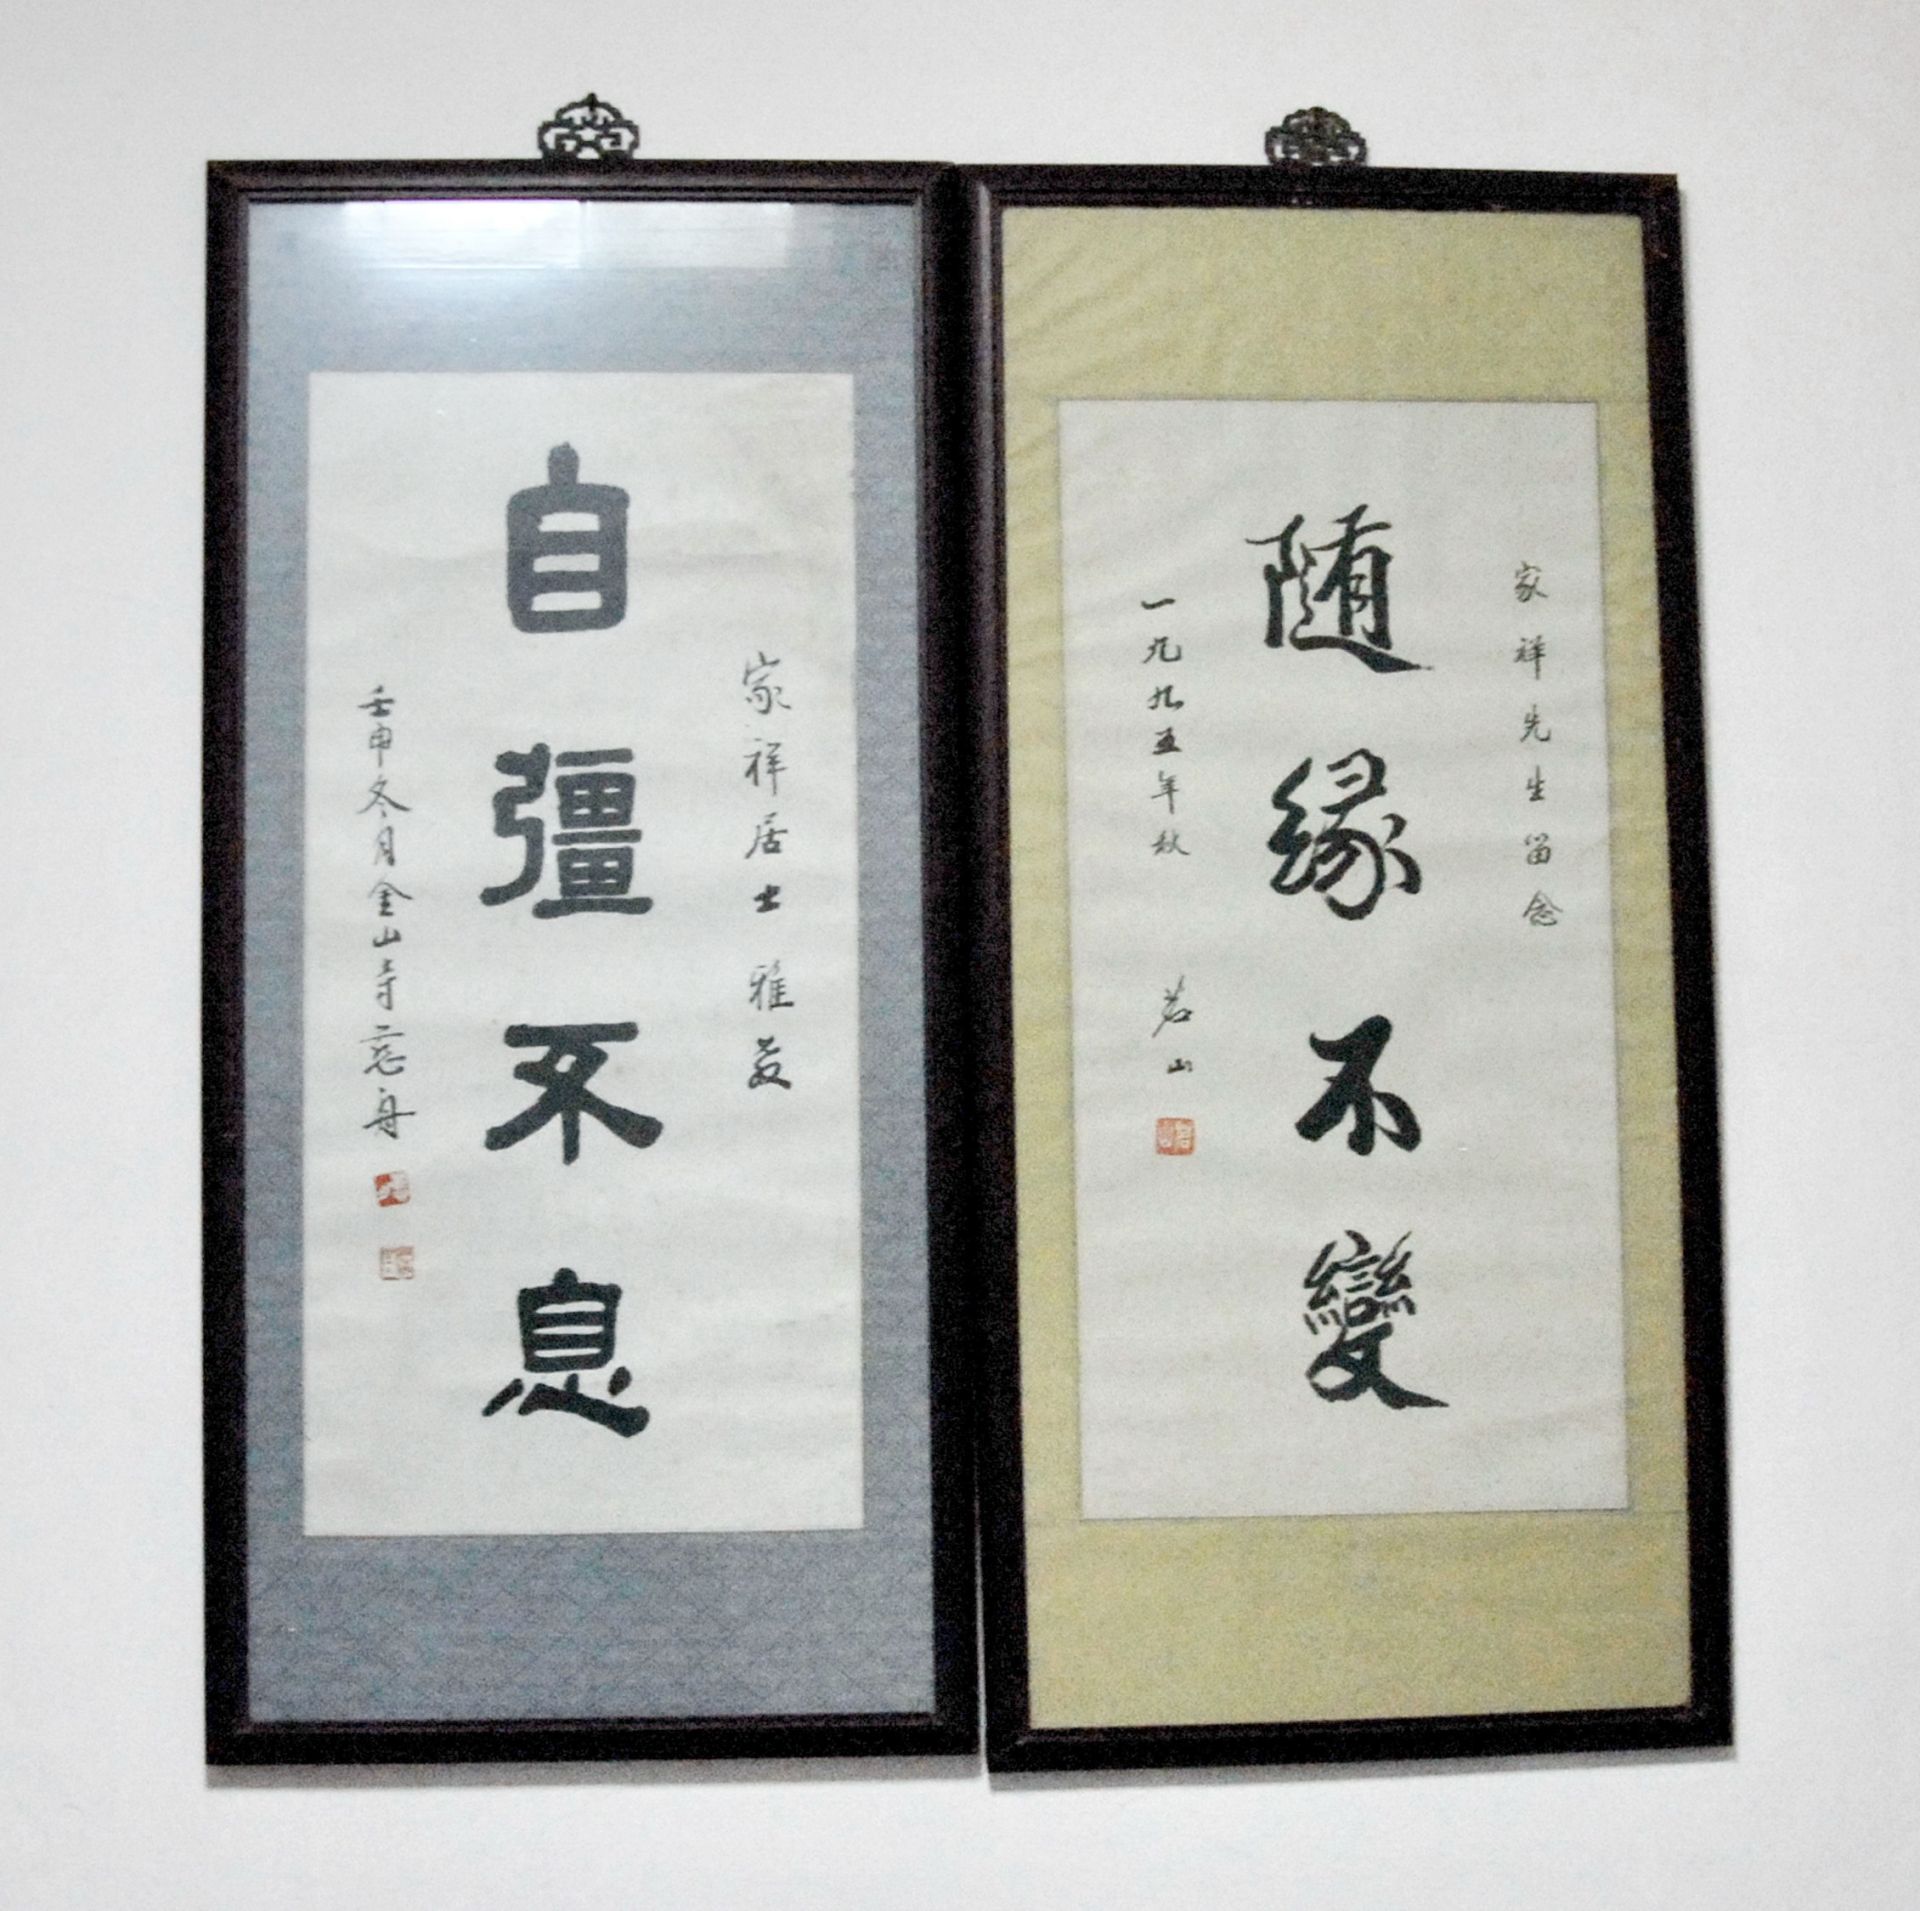 家祥先生留念
随缘不變
一九九五年秋
茗山
家祥居士雅教
自彊不息
壬申冬月金山寺二忘舟